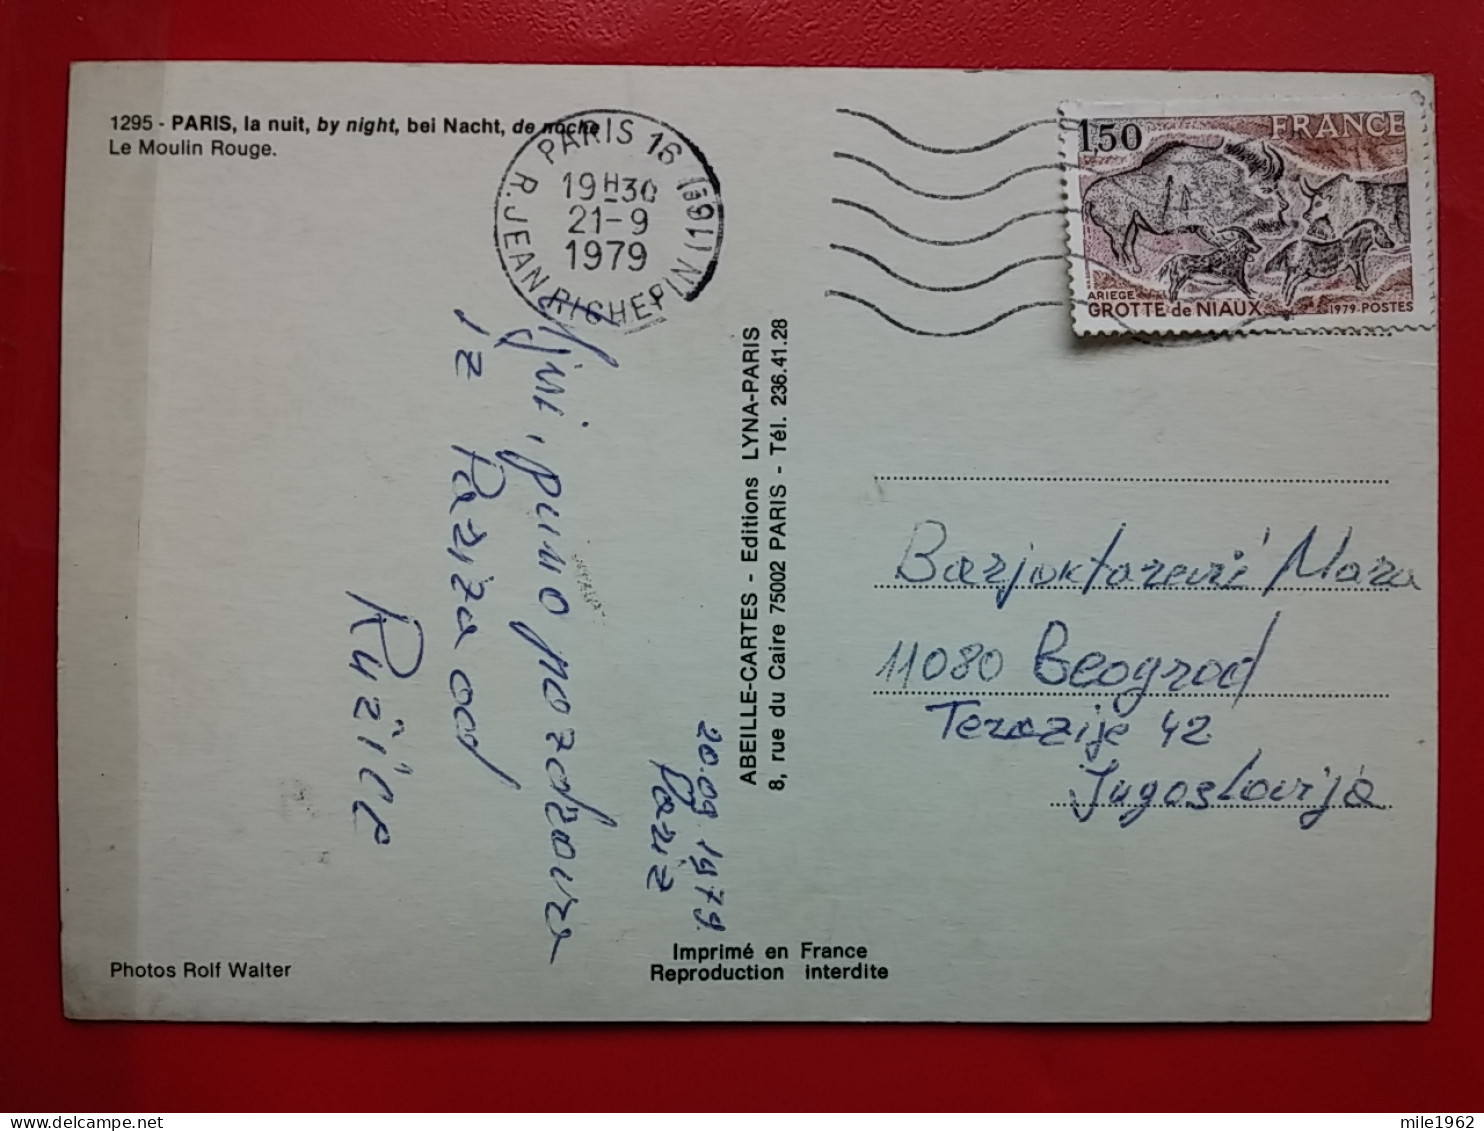 1295 - PARIS, la nuit, by night, bei Nacht, de noche
Le Moulin Rouge.
PARIS 16 (16E)
R. JEAN RICHEPIN
19H30
21-9
1979
1,50 FRANCE
ARIEGE
GROTTE de NIAUX 1979 POSTES
puno pozdrava
iz Pariza od
Ružice
20.09.1979.
Pariz
ABEILLE-CARTES - Editions LYNA-PARIS
8, rue du Caire 75002 PARIS - Tél. 236.41.28
Barjaktarević Mara
11080 Beograd
Terazije 42
Jugoslavija
Photos Rolf Walter
Imprimé en France
Reproduction interdite
mile1962